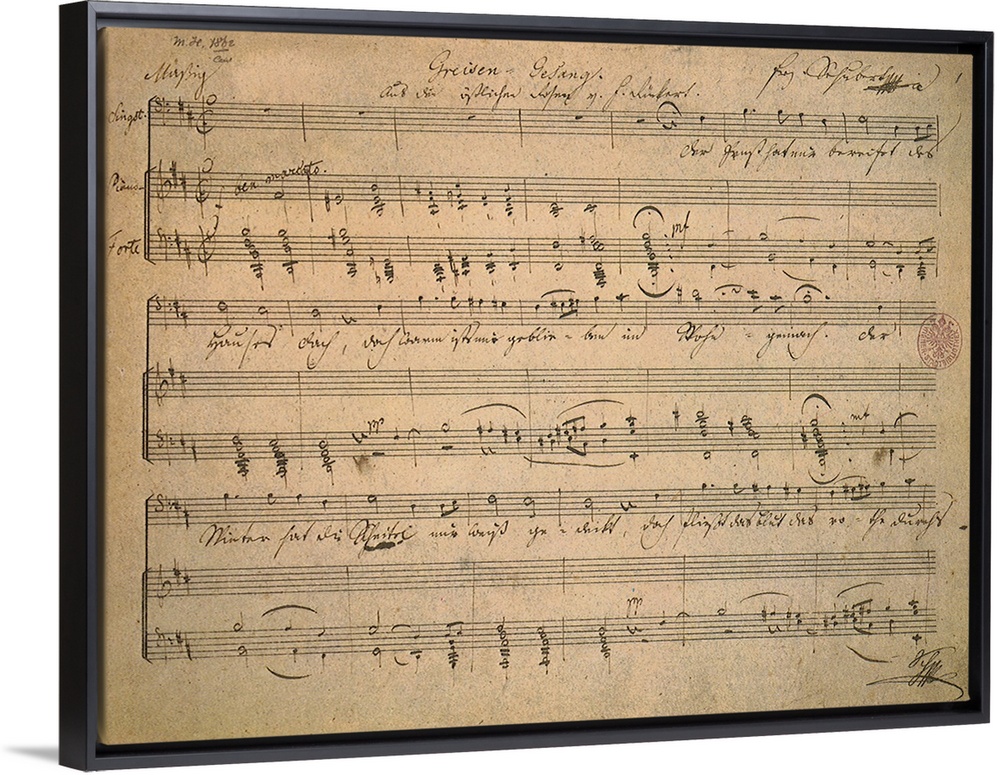 M.H. 1862
Mäßig
Greisen-Gesang.
Frz. Schubert
Aus den östlichen Rosen v. F. Rückert.
Singst.
Der Frost hat mir bereifet des
Piano-
ben marcato.
Forte
mf
Hauses Dach, doch warm ist's mir geblie-ben im Wohn-gemach. Der
pp
mf
Winter hat die Scheitel mir weiß ge-deckt, doch fließt das Blut das ro-the durchs
pp